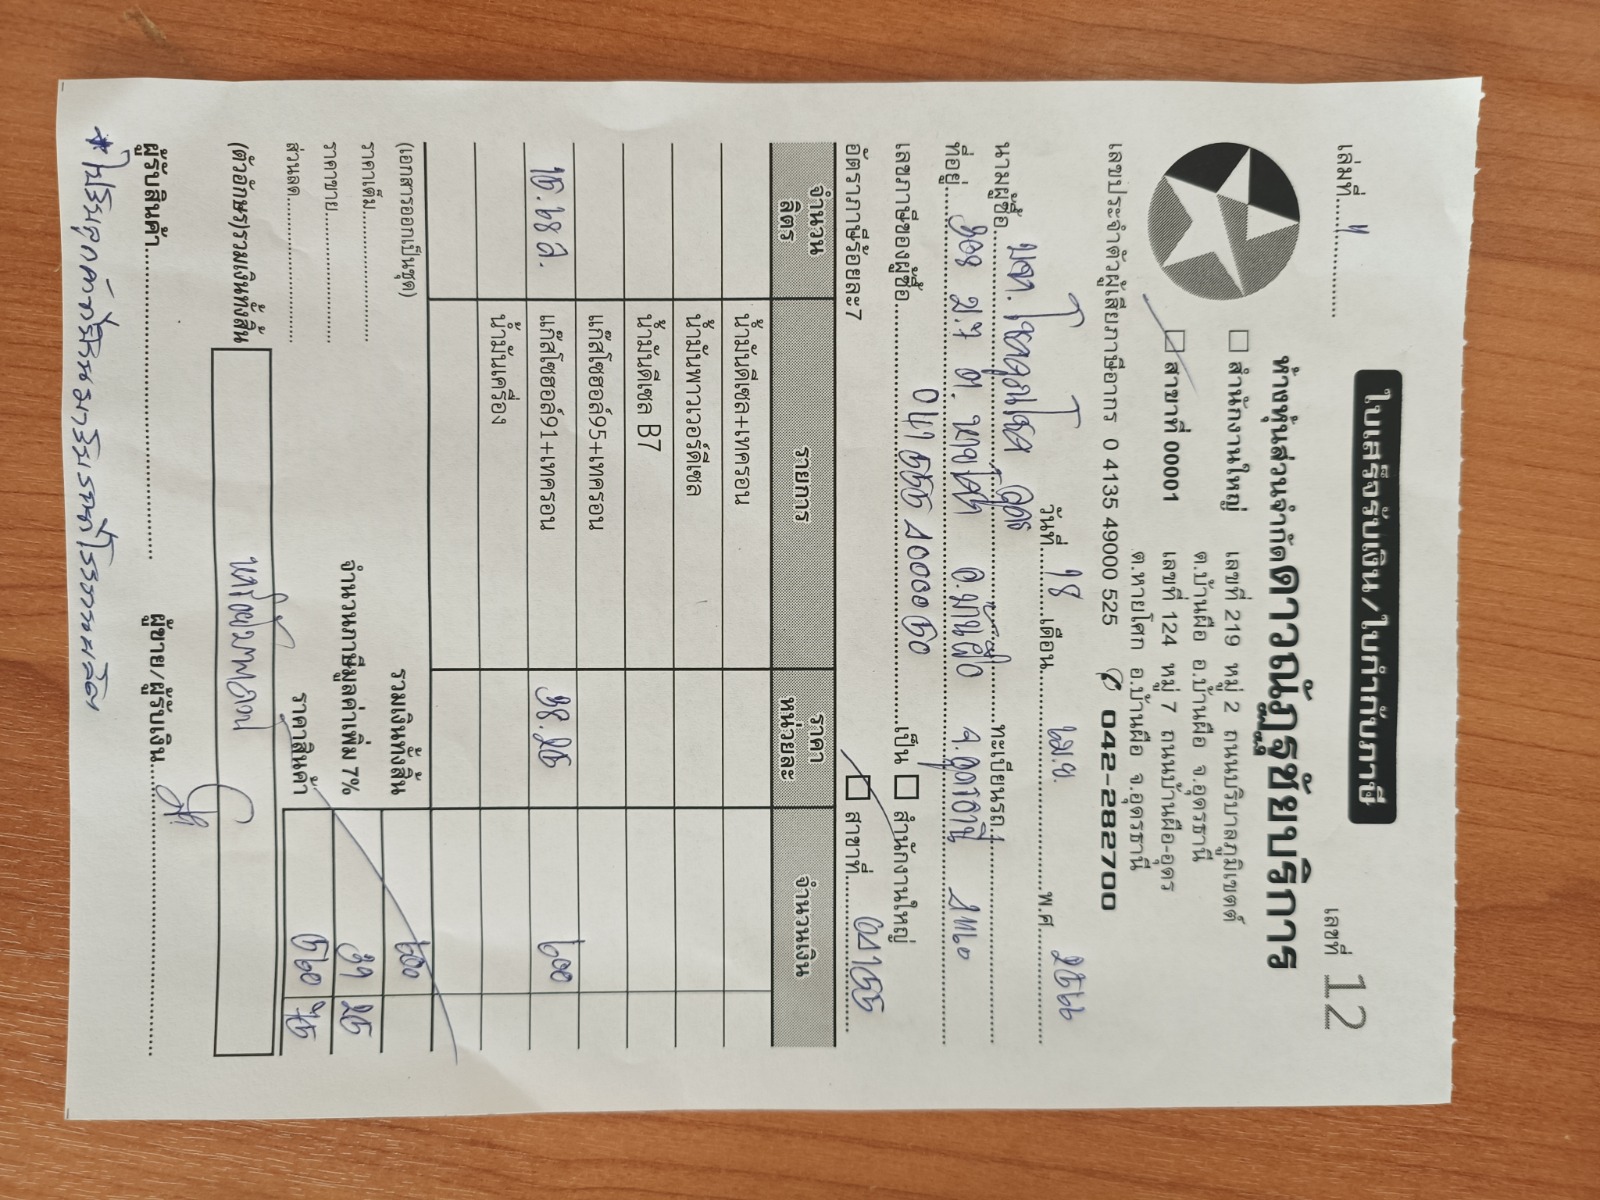 ใบเสร็จรับเงิน/ใบกำกับภาษี
เล่มที่ เลขที่ 12
ห้างหุ้นส่วนจำกัดดาวณัฏฐชัยบริการ
สำนักงานใหญ่ เลขที่ 219 หมู่ 2 ถนนบริบาลภูมิเขตต์
ต.บ้านผือ อ.บ้านผือ จ.อุดรธานี
สาขาที่ 00001 เลขที่ 124 หมู่ 7 ถนนบ้านผือ-อุดร
ต.หายโศก อ.บ้านผือ จ.อุดรธานี
เลขประจำตัวผู้เสียภาษีอากร 0 4135 49000 525 042-282700
วันที่ ๑๘ เดือน เม.ย. พ.ศ. ๒๕๖๖
นามผู้ซื้อ บจก. อุดร ทะเบียนรถ
ที่อยู่ ม.๗ ต. หายโศก อ.บ้านผือ จ.อุดรธานี ๔๑๑๖๐
เลขภาษีของผู้ซื้อ เป็น สำนักงานใหญ่
อัตราภาษีร้อยละ7 สาขาที่
จำนวนลิตร รายการ ราคาหน่วยละ จำนวนเงิน
น้ำมันดีเซล+เทครอน
น้ำมันพาวเวอร์ดีเซล
น้ำมันดีเซล B7
แก๊สโซฮอล์95+เทครอน
๑๕.๖๘ ล. แก๊สโซฮอล์91+เทครอน ๓๘.๒๕ ๖๐๐
น้ำมันเครื่อง
(เอกสารออกเป็นชุด) รวมเงินทั้งสิ้น ๖๐๐
ราคาเต็ม
ราคาขาย จำนวนภาษีมูลค่าเพิ่ม 7% ๓๙ ๒๕
ส่วนลด ราคาสินค้า ๕๖๐ ๗๕
(ตัวอักษร)รวมเงินทั้งสิ้น หกร้อยบาทถ้วน
ผู้รับสินค้า ผู้ขาย/ผู้รับเงิน